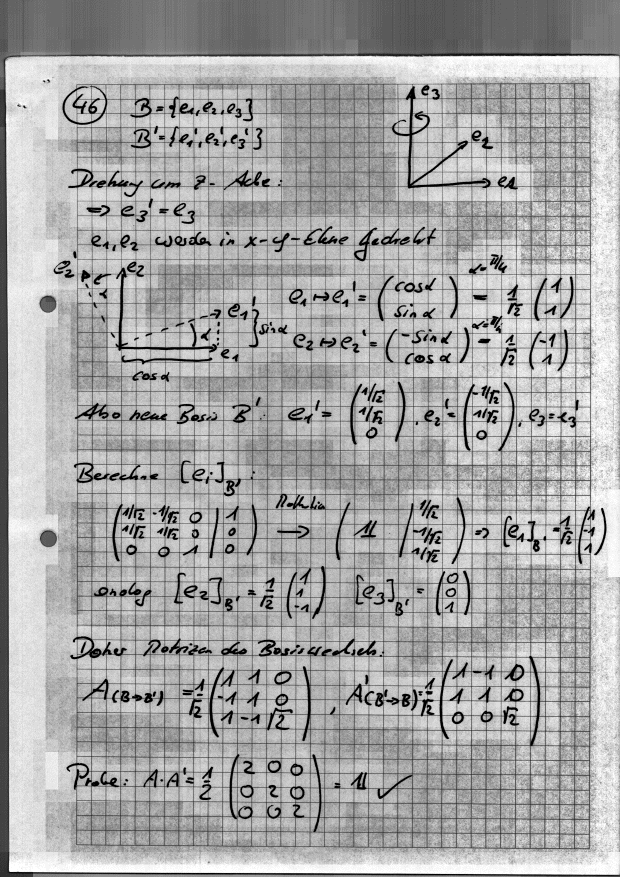 46 B = {e₁, e₂, e₃}
B' = {e₁', e₂', e₃'}
e₃
e₂
e₁
Drehung um z-Achse:
=> e₃' = e₃
e₁, e₂ werden in x-y-Ebene gedreht
e₂' α e₂ e₁' α sin α e₁ cos α
e₁ ↦ e₁' = (cos α; sin α) =^(α=π/4) 1/√2 (1; 1)
e₂ ↦ e₂' = (-sin α; cos α) =^(α=π/4) 1/√2 (-1; 1)
Also neue Basis B': e₁' = (1/√2; 1/√2; 0), e₂' = (-1/√2; 1/√2; 0), e₃ = e₃'
Berechne [eᵢ]_B':
(1/√2 -1/√2 0 | 1; 1/√2 1/√2 0 | 0; 0 0 1 | 0) → (𝟙 | 1/√2; -1/√2; 1/√2) => [e₁]_B' = 1/√2 (1; -1; 1)
analog [e₂]_B' = 1/√2 (1; 1; -1), [e₃]_B' = (0; 0; 1)
Daher Matrizen des Basiswechsels:
A(B→B') = 1/√2 (1 1 0; -1 1 0; 1 -1 √2), A'(B'→B) = 1/√2 (1 -1 0; 1 1 0; 0 0 √2)
Probe: A·A' = 1/2 (2 0 0; 0 2 0; 0 0 2) = 𝟙 ✓